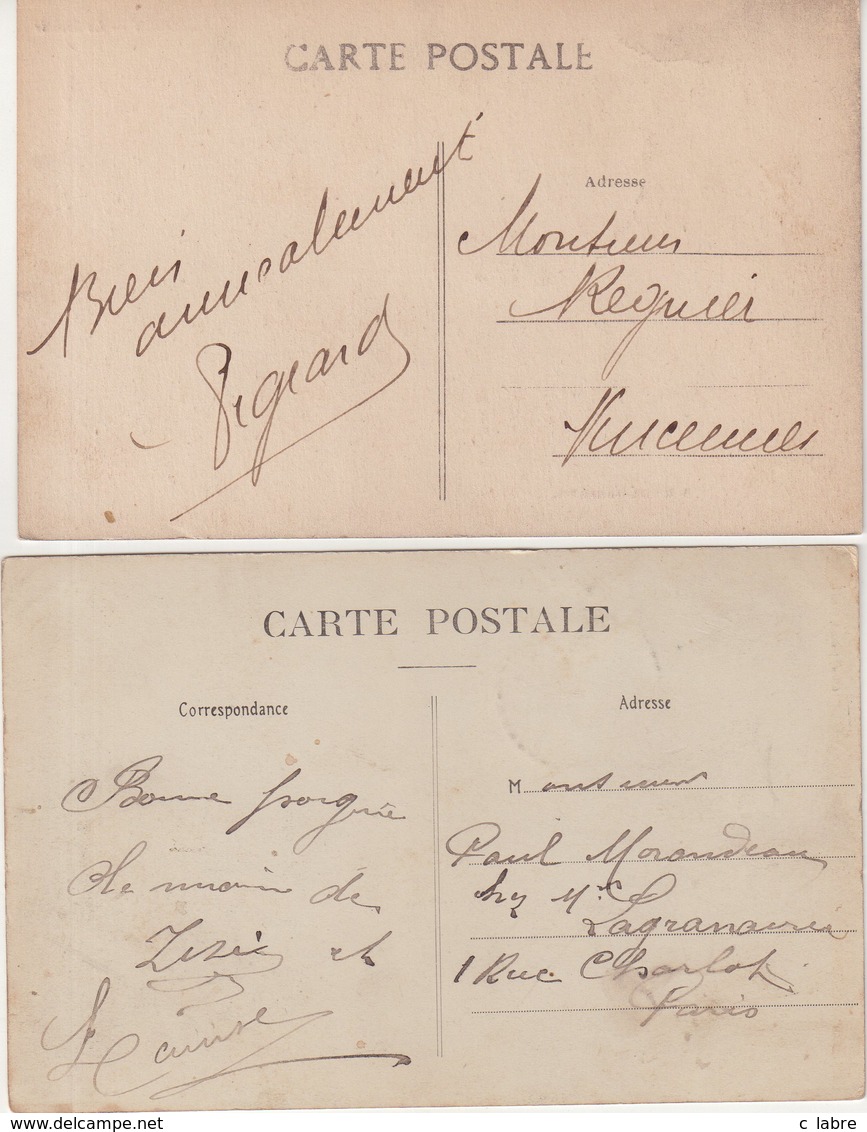 CARTE POSTALE
Bien
amicalement
Pigeard
Adresse
Monsieur
Regnier
Vincennes
CARTE POSTALE
Correspondance
Bonne poignée
de main de
Zizi et
Louise
Adresse
Monsieur
Paul Morandeau
chez Mr
1 Rue Charlot
Paris
www.delcampe.net
c labre